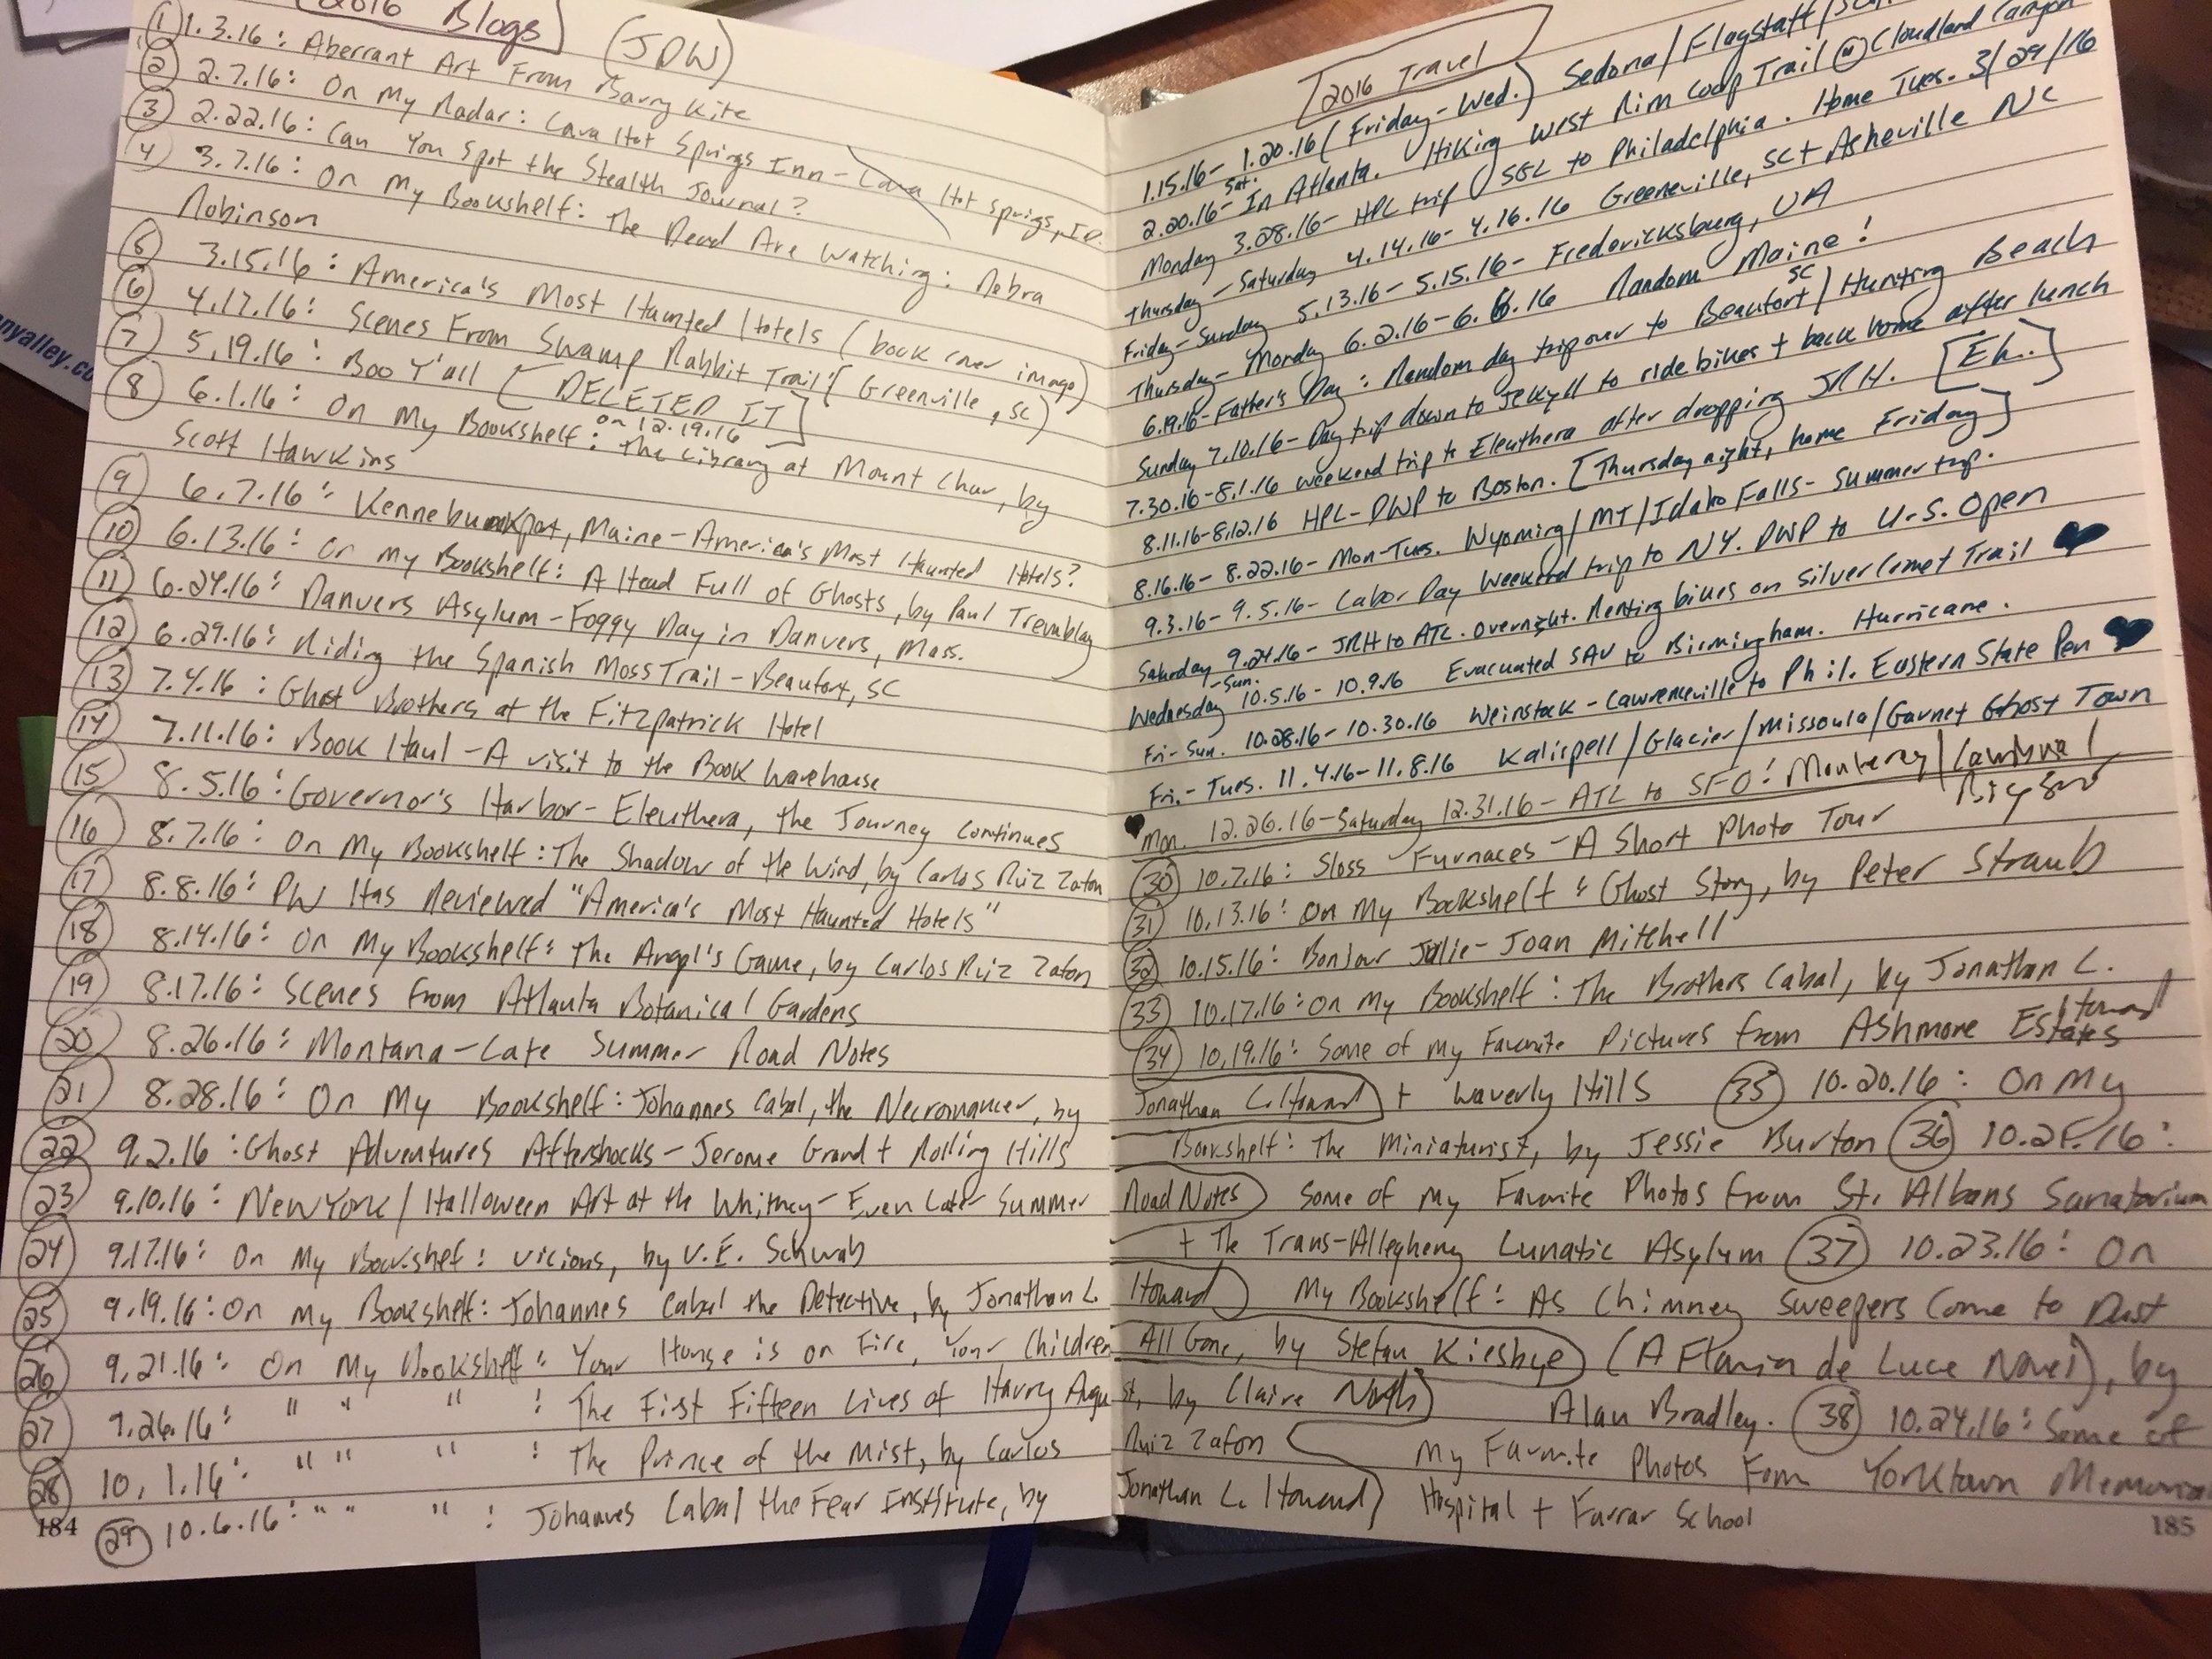 2016 Blogs (JDW)
① 1.3.16: Aberrant Art From Barry Kite
② 2.7.16: On My Radar: Lava Hot Springs Inn - Lava Hot Springs, ID.
③ 2.22.16: Can You Spot the Stealth Journal?
④ 3.7.16: On My Bookshelf: The Dead Are Watching: Debra
Robinson
⑤ 3.15.16: America's Most Haunted Hotels (book cover image)
⑥ 4.17.16: Scenes From Swamp Rabbit Trail (Greenville, SC)
⑦ 5.19.16: Boo Y'all [DELETED IT
on 12.19.16]
⑧ 6.1.16: On My Bookshelf: The Library at Mount Char, by
Scott Hawkins
⑨ 6.7.16: Kennebunkport, Maine - America's Most Haunted Hotels?
⑩ 6.13.16: On My Bookshelf: A Head Full of Ghosts, by Paul Tremblay
⑪ 6.24.16: Danvers Asylum - Foggy Day in Danvers, Mass.
⑫ 6.29.16: Riding the Spanish Moss Trail - Beaufort, SC
⑬ 7.4.16: Ghost Brothers at the Fitzpatrick Hotel
⑭ 7.11.16: Book Haul - A visit to the Book Warehouse
⑮ 8.5.16: Governor's Harbor - Eleuthera, the Journey Continues
⑯ 8.7.16: On My Bookshelf: The Shadow of the Wind, by Carlos Ruiz Zafon
⑰ 8.8.16: PW Has Reviewed "America's Most Haunted Hotels"
⑱ 8.14.16: On My Bookshelf: The Angel's Game, by Carlos Ruiz Zafon
⑲ 8.17.16: Scenes From Atlanta Botanical Gardens
⑳ 8.26.16: Montana - Late Summer Road Notes
㉑ 8.28.16: On My Bookshelf: Johannes Cabal, the Necromancer, by
㉒ 9.2.16: Ghost Adventures Aftershocks - Jerome Grand + Rolling Hills
㉓ 9.10.16: New York/Halloween Art at the Whitney - Even Later Summer
㉔ 9.17.16: On My Bookshelf: Vicious, by V.E. Schwab
㉕ 9.19.16: On My Bookshelf: Johannes Cabal the Detective, by Jonathan L.
㉖ 9.21.16: On My Bookshelf: Your House is on Fire, Your Children
㉗ 9.26.16: " " " : The First Fifteen Lives of Harry Augu
㉘ 10.1.16: " " " : The Prince of the Mist, by Carlos
184
㉙ 10.6.16: " " " : Johannes Cabal the Fear Institute, by
2016 Travel
1.15.16 - 1.20.16 (Friday - Wed.) Sedona/Flagstaff/
2.20.16 - Sat. In Atlanta. Hiking West Rim Loop Trail @ Cloudland Canyon
Monday 3.28.16 - HPL trip SGL to Philadelphia. Home Tues. 3/29/16
Thursday - Saturday 4.14.16 - 4.16.16 Greeneville, SC + Asheville NC
Friday - Sunday 5.13.16 - 5.15.16 - Fredericksburg, VA
Thursday - Monday 6.2.16 - 6.6.16 Random Maine!
6.19.16 - Father's Day: Random day trip over to Beaufort SC/Hunting Beach
Sunday 7.10.16 - Day trip down to Jekyll to ride bikes + back home after lunch
7.30.16 - 8.1.16 weekend trip to Eleuthera after dropping JRH. [Eh.]
8.11.16-8.12.16 HPL - DWP to Boston. [Thursday night, home Friday]
8.16.16 - 8.22.16 - Mon-Tues. Wyoming/MT/Idaho Falls - Summer trip.
9.3.16 - 9.5.16 - Labor Day Weekend trip to NY. DWP to U.S. Open
Saturday - Sun. 9.24.16 - JRH to ATL. Overnight. Renting bikes on Silver Comet Trail ♥
Wednesday 10.5.16 - 10.9.16 Evacuated SAV to Birmingham. Hurricane.
Fri-Sun. 10.28.16 - 10.30.16 Weinstock - Lawrenceville to Phil. Eastern State Pen ♥
Fri.-Tues. 11.4.16 - 11.8.16 Kalispell/Glacier/Missoula/Garnet Ghost Town
♥ Mon. 12.26.16 - Saturday 12.31.16 - ATL to SFO! Monterey/Carmel
Big Sur
㉚ 10.7.16: Sloss Furnaces - A Short Photo Tour
㉛ 10.13.16: On My Bookshelf: Ghost Story, by Peter Straub
㉜ 10.15.16: Bonjour Julie - Joan Mitchell
㉝ 10.17.16: On My Bookshelf: The Brothers Cabal, by Jonathan L.
Howard
㉞ 10.19.16: Some of My Favorite Pictures from Ashmore Estates
Jonathan L. Howard + Waverly Hills ㉟ 10.20.16: On My
Bookshelf: The Miniaturist, by Jessie Burton ㊱ 10.21.16:
Road Notes Some of My Favorite Photos from St. Albans Sanatorium
+ The Trans-Allegheny Lunatic Asylum ㊲ 10.23.16: On
Howard My Bookshelf: As Chimney Sweepers Come to Dust
All Gone, by Stefan Kiesbye (A Flavia de Luce Novel), by
st, by Claire North Alan Bradley. ㊳ 10.24.16: Some of
Ruiz Zafon My Favorite Photos From Yorktown Memorial
Jonathan L. Howard Hospital + Farrar School
185